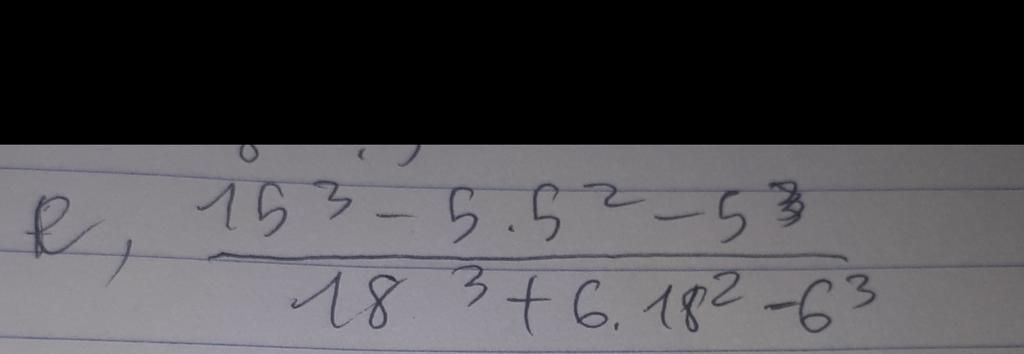 e, 15³ - 5.5² - 5³
18³ + 6.18² - 6³